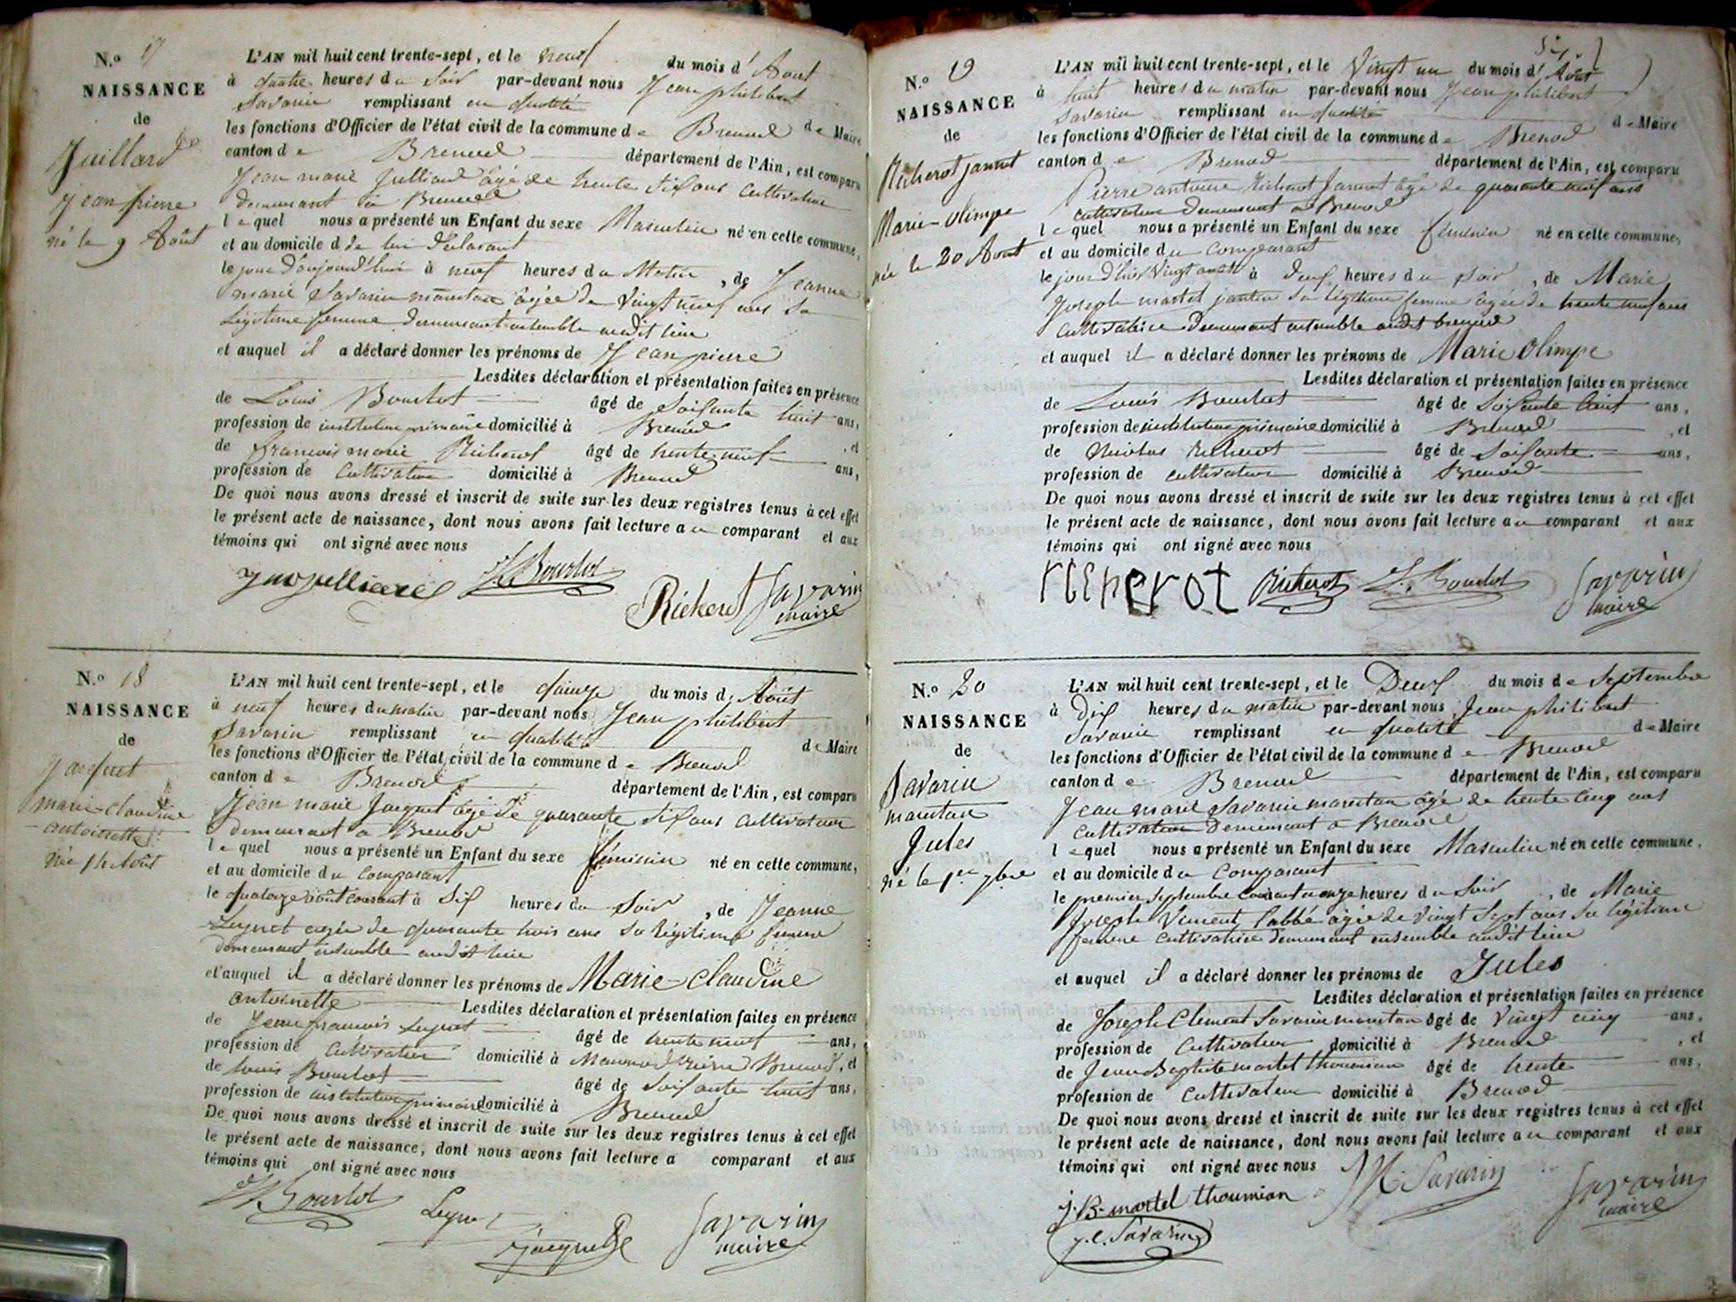 N.o 17
NAISSANCE
de
Juillard
Jean pierre
né le 9 Août
L'AN mil huit cent trente-sept, et le neuf du mois d' Août
à quatre heures du soir par-devant nous Jean philibert
Savarin remplissant en qualité de Maire
les fonctions d'Officier de l'état civil de la commune de Brenod
canton de Brenod département de l'Ain, est comparu
Jean marie Julliard âgé de trente six ans cultivateur
demeurant à Brenod
lequel nous a présenté un Enfant du sexe Masculin né en cette commune,
et au domicile de lui déclarant
le jour d'aujourd'hui à neuf heures du Matin, de Jeanne
marie Savarin âgée de vingt neuf ans sa
légitime femme demeurant ensemble audit lieu
et auquel il a déclaré donner les prénoms de Jean pierre
Lesdites déclaration et présentation faites en présence
de Louis Bourlot âgé de soixante huit ans,
profession de instituteur primaire domicilié à Brenod, et
de françois marie Richerot âgé de trente neuf ans,
profession de cultivateur domicilié à Brenod
De quoi nous avons dressé et inscrit de suite sur les deux registres tenus à cet effet
le présent acte de naissance, dont nous avons fait lecture au comparant et aux
témoins qui ont signé avec nous
L. Bourlot
Richerot Savarin
maire
N.o 18
NAISSANCE
de
Jacquet
marie-claudine
antoinette
L'AN mil huit cent trente-sept, et le quinze du mois d' Août
à neuf heures du matin par-devant nous Jean philibert
Savarin remplissant en qualité de Maire
les fonctions d'Officier de l'état civil de la commune de Brenod
canton de Brenod département de l'Ain, est comparu
Jean marie Jacquet âgé de quarante six ans cultivateur
demeurant à Brenod
lequel nous a présenté un Enfant du sexe féminin né en cette commune,
et au domicile du comparant
le quatorze août courant à six heures du soir, de Jeanne
Leynet âgée de quarante trois ans sa légitime femme
demeurant ensemble audit lieu
et auquel il a déclaré donner les prénoms de Marie-claudine
antoinette Lesdites déclaration et présentation faites en présence
de Jean francois Leynet âgé de trente neuf ans,
profession de cultivateur domicilié à Brenod, et
de Louis Bourlot âgé de soixante huit ans,
profession de instituteur primaire domicilié à Brenod
De quoi nous avons dressé et inscrit de suite sur les deux registres tenus à cet effet
le présent acte de naissance, dont nous avons fait lecture a comparant et aux
témoins qui ont signé avec nous
L. Bourlot
Leynet Savarin
Jacquet maire
N.o 19
NAISSANCE
de
Richerot jannet
Marie-olimpe
née le 20 Aout
L'AN mil huit cent trente-sept, et le vingt un du mois d' Août
à huit heures du matin par-devant nous Jean philibert
Savarin remplissant en qualité de Maire
les fonctions d'Officier de l'état civil de la commune de Brenod
canton de Brenod département de l'Ain, est comparu
Pierre antoine Richerot Jannet âgé de quarante neuf ans
cultivateur demeurant à Brenod
lequel nous a présenté un Enfant du sexe féminin né en cette commune,
et au domicile du comparant
le jour d'hier vingt aout à deux heures du soir, de Marie
Josephe martel jantin sa légitime femme âgée de trente neuf ans
cultivatrice demeurant ensemble audit brenod
et auquel il a déclaré donner les prénoms de Marie olimpe
Lesdites déclaration et présentation faites en présence
de Louis Bourlot âgé de soixante huit ans,
profession de instituteur primaire domicilié à Brenod, et
de Nicolas Richerot âgé de soixante ans,
profession de cultivateur domicilié à Brenod
De quoi nous avons dressé et inscrit de suite sur les deux registres tenus à cet effet
le présent acte de naissance, dont nous avons fait lecture au comparant et aux
témoins qui ont signé avec nous
richerot Richerot L. Bourlot Savarin
maire
N.o 20
NAISSANCE
de
Savarin
maretan
Jules
né le 1er 7bre
L'AN mil huit cent trente-sept, et le Deux du mois de Septembre
à dix heures du matin par-devant nous Jean philibert
Savarin remplissant en qualité de Maire
les fonctions d'Officier de l'état civil de la commune de Brenod
canton de Brenod département de l'Ain, est comparu
Jean marie Savarin maretan âgé de trente cinq ans
cultivateur demeurant à Brenod
lequel nous a présenté un Enfant du sexe Masculin né en cette commune,
et au domicile du comparant
le premier septembre courant à onze heures du soir, de Marie
Josephe Vincent labbé âgée de vingt sept ans sa légitime
femme cultivatrice demeurant ensemble audit lieu
et auquel il a déclaré donner les prénoms de Jules
Lesdites déclaration et présentation faites en présence
de Joseph Clément Savarin maretan âgé de vingt cinq ans,
profession de cultivateur domicilié à Brenod, et
de Jean Baptiste martel thoumian âgé de trente ans,
profession de cultivateur domicilié à Brenod
De quoi nous avons dressé et inscrit de suite sur les deux registres tenus à cet effet
le présent acte de naissance, dont nous avons fait lecture au comparant et aux
témoins qui ont signé avec nous
j. B. martel thoumian JM Savarin Savarin
j. C. Savarin maire